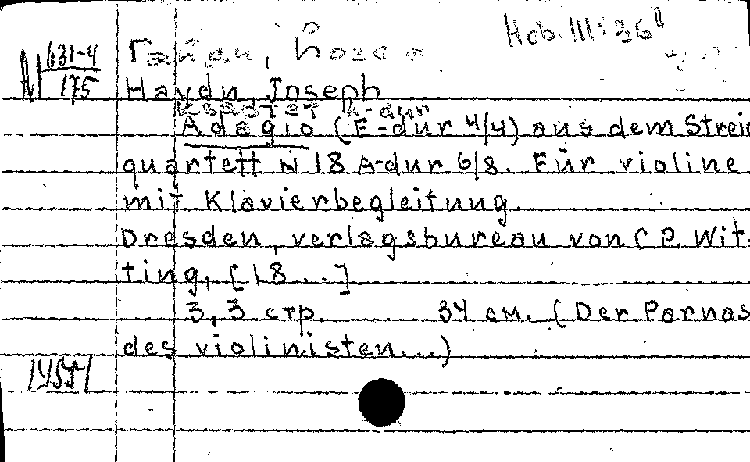 Hob. III:36
631-4
175
Гайдн, Йозеф
Haydn, Joseph
Adagio (E-dur 4/4) aus dem Strei
quartett N 18 A-dur 6/8. Für violine
mit Klavierbegleitung.
Dresden, verlagsbureau von C P. Wit-
ting, [18...]
3, 3 стр. 34 см. (Der Parnas
des violinisten...)